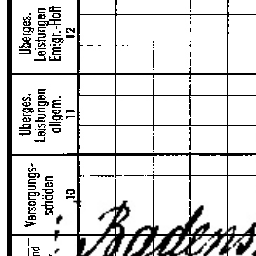 Überges.
Leistungen
Emigr.-Hoff
12
Überges.
Leistungen
allgem.
11
Versorgungs-
schäden
10
Badens